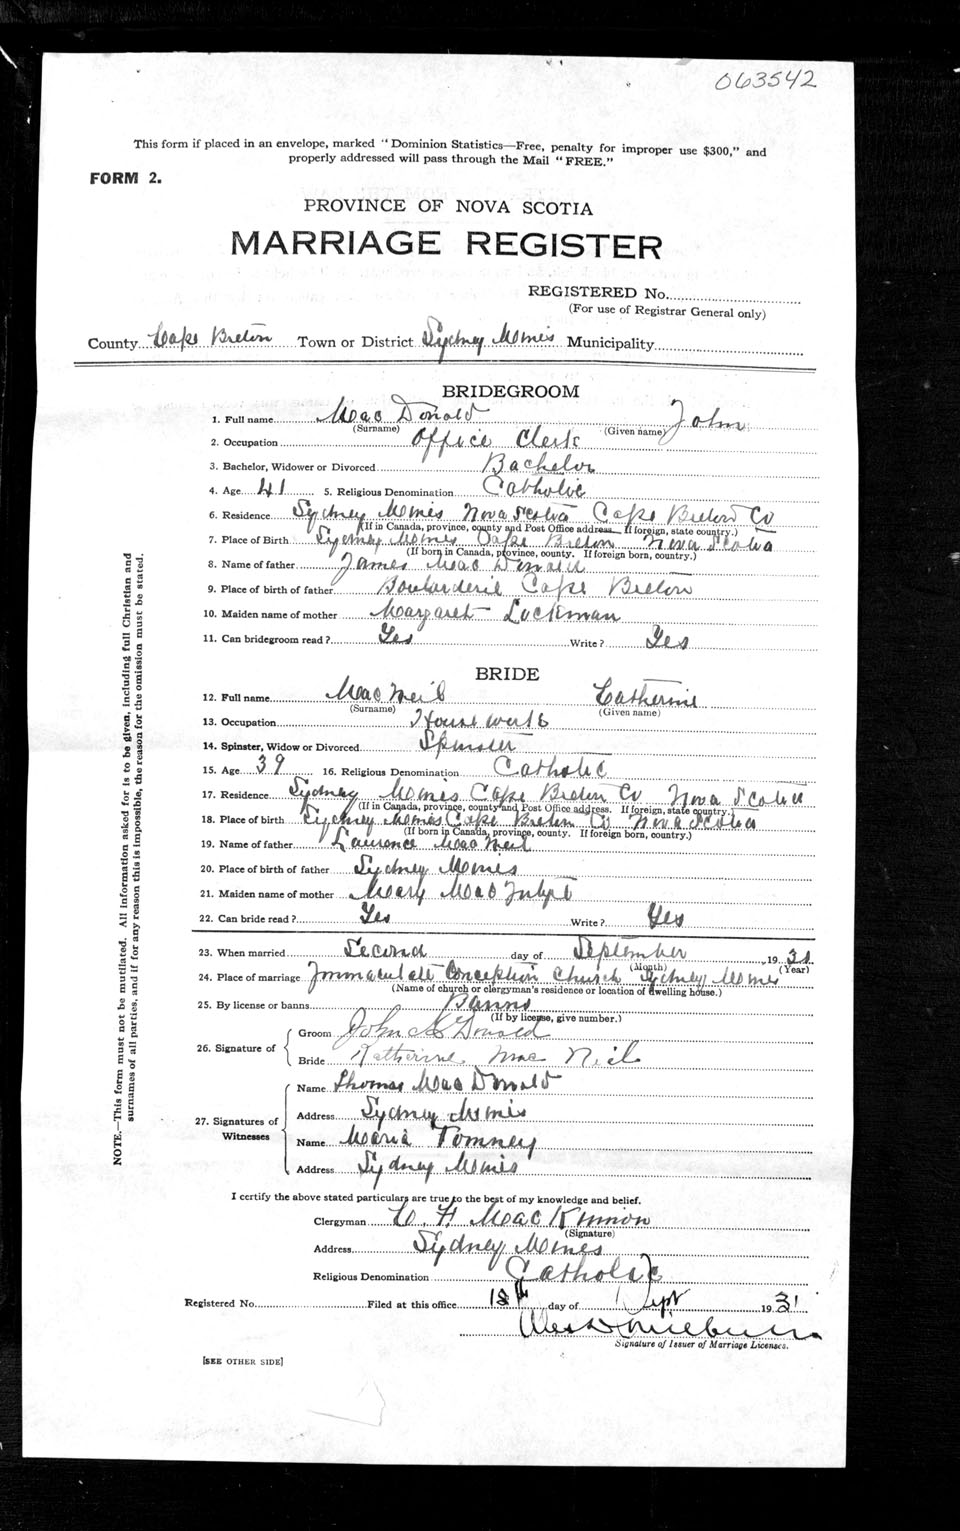 063542
This form if placed in an envelope, marked "Dominion Statistics—Free, penalty for improper use $300," and
properly addressed will pass through the Mail "FREE."
FORM 2.
PROVINCE OF NOVA SCOTIA
MARRIAGE REGISTER
REGISTERED No.
(For use of Registrar General only)
County Cape Breton Town or District Sydney Mines Municipality
BRIDEGROOM
1. Full name MacDonald John
(Surname) (Given name)
2. Occupation Office Clerk
3. Bachelor, Widower or Divorced Bachelor
4. Age 41 5. Religious Denomination Catholic
6. Residence Sydney Mines Nova Scotia Cape Breton Co
(If in Canada, province, county and Post Office address. If foreign, state country.)
7. Place of Birth Sydney Mines Cape Breton Nova Scotia
(If born in Canada, province, county. If foreign born, country.)
8. Name of father James MacDonald
9. Place of birth of father Boularderie Cape Breton
10. Maiden name of mother Margaret Lockman
11. Can bridegroom read? Yes Write? Yes
BRIDE
12. Full name MacNeil Catherine
(Surname) (Given name)
13. Occupation House work
14. Spinster, Widow or Divorced Spinster
15. Age 39 16. Religious Denomination Catholic
17. Residence Sydney Mines Cape Breton Co Nova Scotia
(If in Canada, province, county and Post Office address. If foreign, state country.)
18. Place of birth Sydney Mines Cape Breton Co Nova Scotia
(If born in Canada, province, county. If foreign born, country.)
19. Name of father Laurence MacNeil
20. Place of birth of father Sydney Mines
21. Maiden name of mother Mary Mac
22. Can bride read? Yes Write? Yes
23. When married Second day of September 1931
(Month) (Year)
24. Place of marriage Immaculate Conception Church Sydney Mines
(Name of church or clergyman's residence or location of dwelling house.)
25. By license or banns Banns
(If by license, give number.)
26. Signature of Groom John McDonald
Bride Katherine Mac Neil
27. Signatures of Witnesses
Name Thomas MacDonald
Address Sydney Mines
Name Maria Tomney
Address Sydney Mines
I certify the above stated particulars are true to the best of my knowledge and belief.
Clergyman C. F. MacKinnon
(Signature)
Address Sydney Mines
Religious Denomination Catholic
Registered No. Filed at this office 18th day of Sept 1931
Signature of Issuer of Marriage Licenses.
[SEE OTHER SIDE]
NOTE.—This form must not be mutilated. All information asked for is to be given, including full Christian and
surnames of all parties, and if for any reason this is impossible, the reason for the omission must be stated.